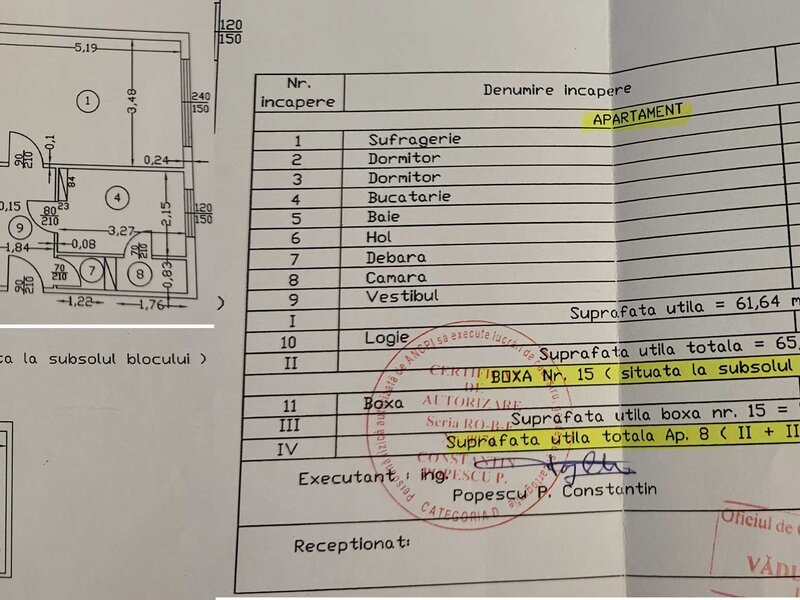 120
150
5,19
1
3,48
240
150
0,1
90
210
0,24
84
4
2,15
120
150
0,15
80
210
23
9
3,27
1,84
0,08
70
210
70
210
7
8
0,83
90
210
1,22
1,76
)
ta la subsolul blocului )
Nr. incapere
Denumire incapere
APARTAMENT
1 Sufragerie
2 Dormitor
3 Dormitor
4 Bucatarie
5 Baie
6 Hol
7 Debara
8 Camara
9 Vestibul
I Suprafata utila = 61,64 m
10 Logie
II Suprafata utila totala = 65,
BOXA Nr. 15 ( situata la subsolul
11 Boxa
III Suprafata utila boxa nr. 15 =
IV Suprafata utila totala Ap. 8 ( II + II
Executant : ing.
Popescu P. Constantin
Receptionat:
CERTIFICAT
DE
AUTORIZARE
Seria RO-B-F
CONSTANTIN
POPESCU P.
CATEGORIA D
Oficiul de
VĂDU